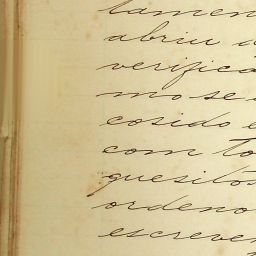 tamen
abriu a
verifica
mo se
cosido e
com to
quesitos
ordeno
escreve